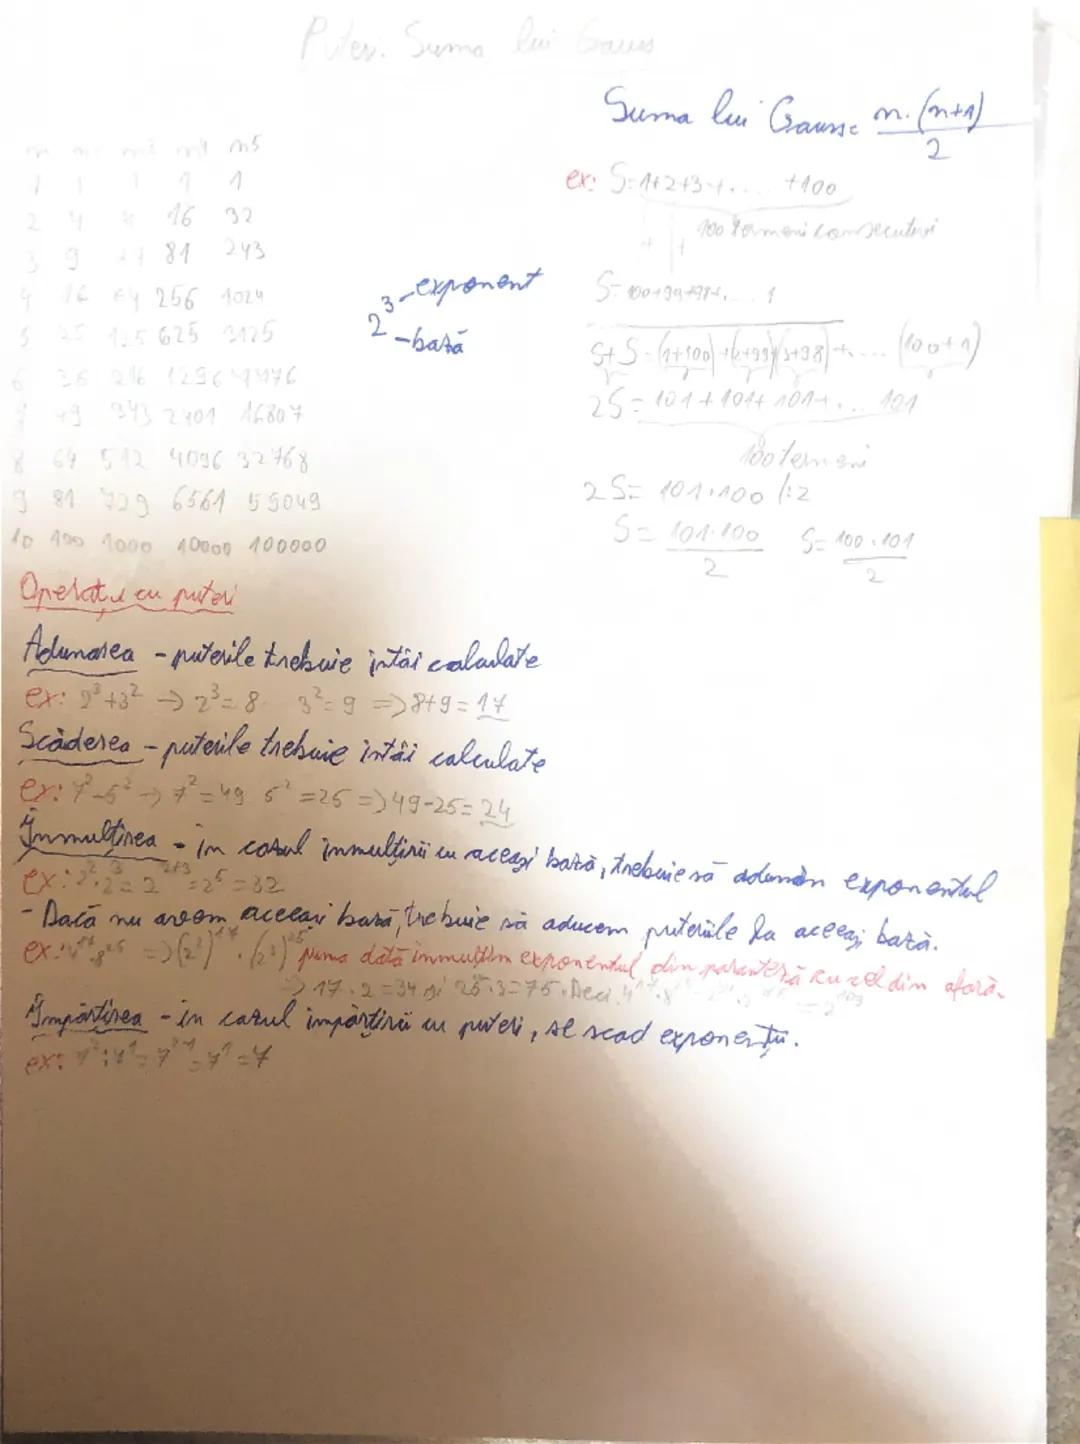 Puteri. Suma lui Gauss
Suma lui Gauss= n.(n+1)/2
n n² n3 n4 n5
1 1 1 1 1
2 4 8 16 32
3 9 27 81 243
4 16 64 256 1024
5 25 125 625 3125
6 36 216 1296 7776
7 49 343 2401 16807
8 64 512 4096 32768
9 81 729 6561 59049
10 100 1000 10000 100000
2³ -exponent
-bază
ex: S=1+2+3+.... +100
100 termeni consecutivi
S=100+99+98+... 1
S+S=(1+100)+(2+99)(3+98)+... (100+1)
2S=101+101+101+... 101
100 termeni
2S=101·100 /:2
S=101·100/2 S=100·101/2
Operații cu puteri
Adunarea - puterile trebuie întâi calculate
ex: 2³+3² → 2³=8 3²=9 =>8+9=17
Scăderea - puterile trebuie întâi calculate
ex: 7²-5² → 7²=49 5²=25 =>49-25=24
Înmulțirea - în cazul înmulțirii cu aceeași bază, trebuie să adunăm exponentul
ex: 2²·2³=2²⁺³=2⁵=32
- Dacă nu avem aceeași bază, trebuie să aducem puterile la aceeași bază.
ex: 4¹⁷·8²⁵ =>(2²)¹⁷·(2³)²⁵ prima dată înmulțim exponentul din paranteză cu cel din afară.
=> 17·2=34 și 25·3=75. Deci 4¹⁷·8²⁵ =2¹⁰⁹
Împărțirea - în cazul împărțirii cu puteri, se scad exponenții.
ex: 7²:7¹=7²⁻¹=7¹=7